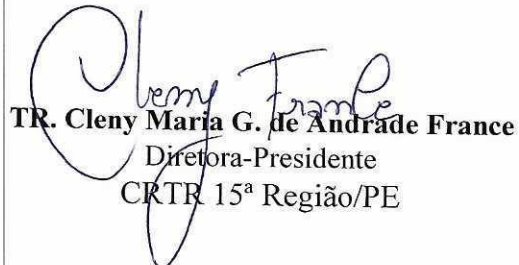 Cleny France
TR. Cleny Maria G. de Andrade France
Diretora-Presidente
CRTR 15ª Região/PE